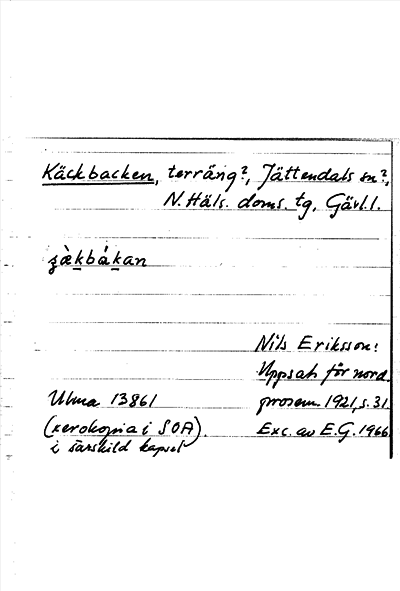 Käckbacken, terräng?, Jättendals sn?,
N. Häls. doms. tg, Gävl. l.
ʒæ̀kbákan
Nils Eriksson:
Uppsats för nord.
Ulma 13861 prosem. 1921, s. 31.
(xerokopia i SOA). Exc. av E.G. 1966
i särskild kapsel